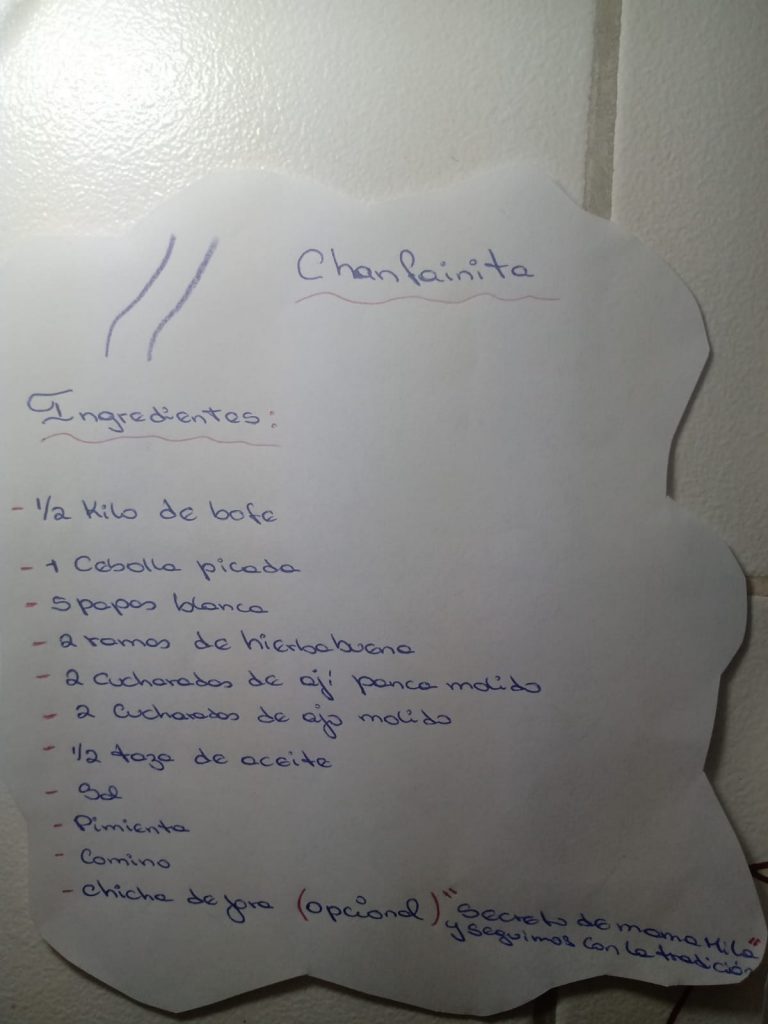 Chanfainita
Ingredientes:
- 1/2 Kilo de bofe
- 1 Cebolla picada
- 5 papas blanca
- 2 ramas de hierbabuena
- 2 cucharadas de ají panca molido
- 2 cucharadas de ajo molido
- 1/2 taza de aceite
- Sal
- Pimienta
- Comino
- chicha de jora (opcional) "secreto de mama Hila"
y seguimos con la tradición